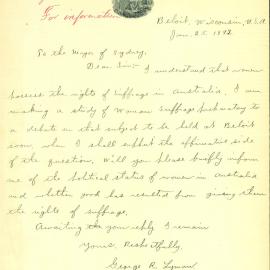 For information
Beloit, Wisconsin, U.S.A.
Jan. 25, 1892
To the Mayor of Sydney.
Dear Sir:— I understand that women
possess the rights of suffrage in Australia. I am
making a study of Woman Suffrage preparatory to
a debate on that subject to be held at Beloit
soon, when I shall support the affirmative side
of the question. Will you please briefly inform
me of the political status of women in Australia
and whether good has resulted from giving them
the rights of suffrage.
Awaiting your reply I remain
Yours Respectfully,
George R. Lyman